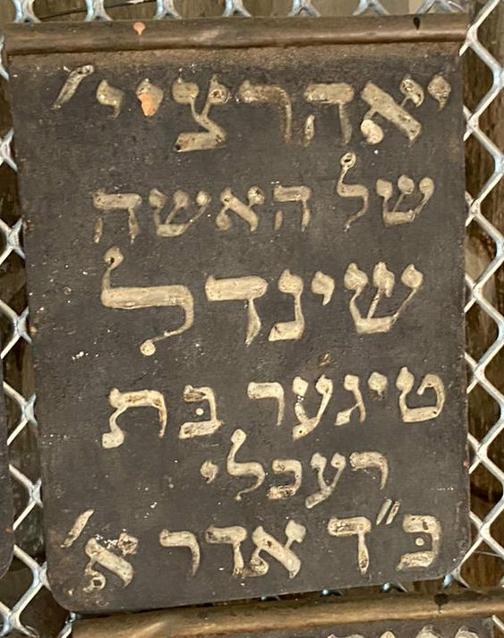 יאהרציי׳
של האשה
שינדל
טיגער בת
רעכלי
כ״ד אדר א׳